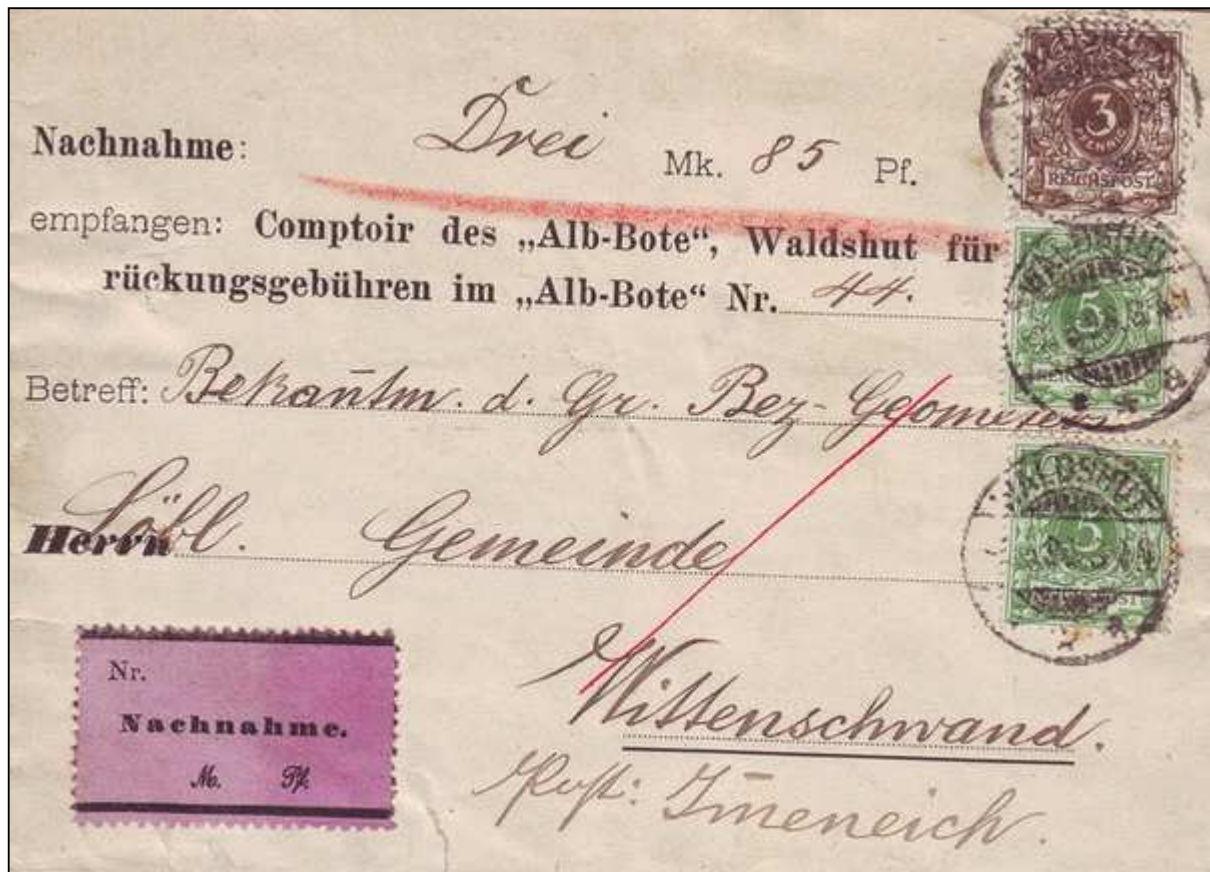 Nachnahme: Drei Mk. 85 Pf.
empfangen: Comptoir des „Alb-Bote“, Waldshut für
rückungsgebühren im „Alb-Bote“ Nr. 44.
Betreff: Bekan̄tm. d. Gr. Bez-Geometers
Herrn Löbl. Gemeinde
Wittenschwand.
Post: Im̄eneich.
Nr.
Nachnahme.
M. Pf.
3
REICHSPOST
5
WALDSHUT
5